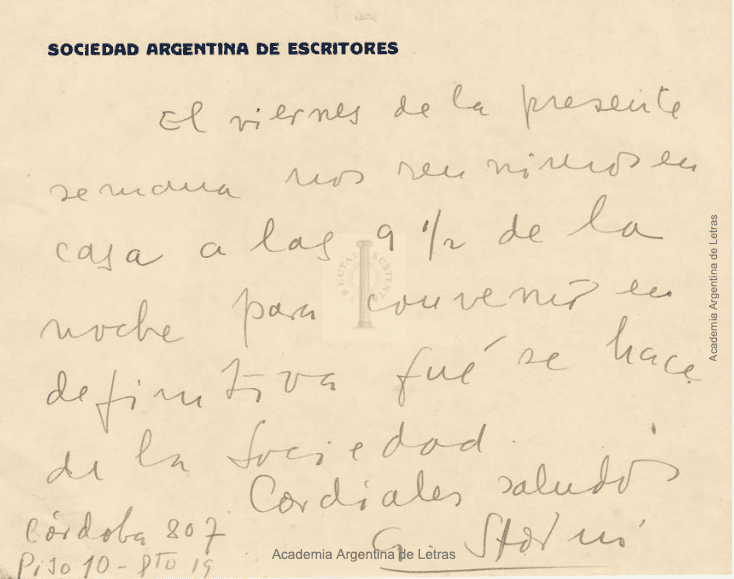 SOCIEDAD ARGENTINA DE ESCRITORES
El viernes de la presente
semana nos reunimos en
casa a las 9 1/2 de la
noche para convenir en
definitiva qué se hace
de la Sociedad.
Cordiales saludos
A. Storni
Córdoba 807
Piso 10 - Pto 19
RECTA SUSTENTA
Academia Argentina de Letras
Academia Argentina de Letras